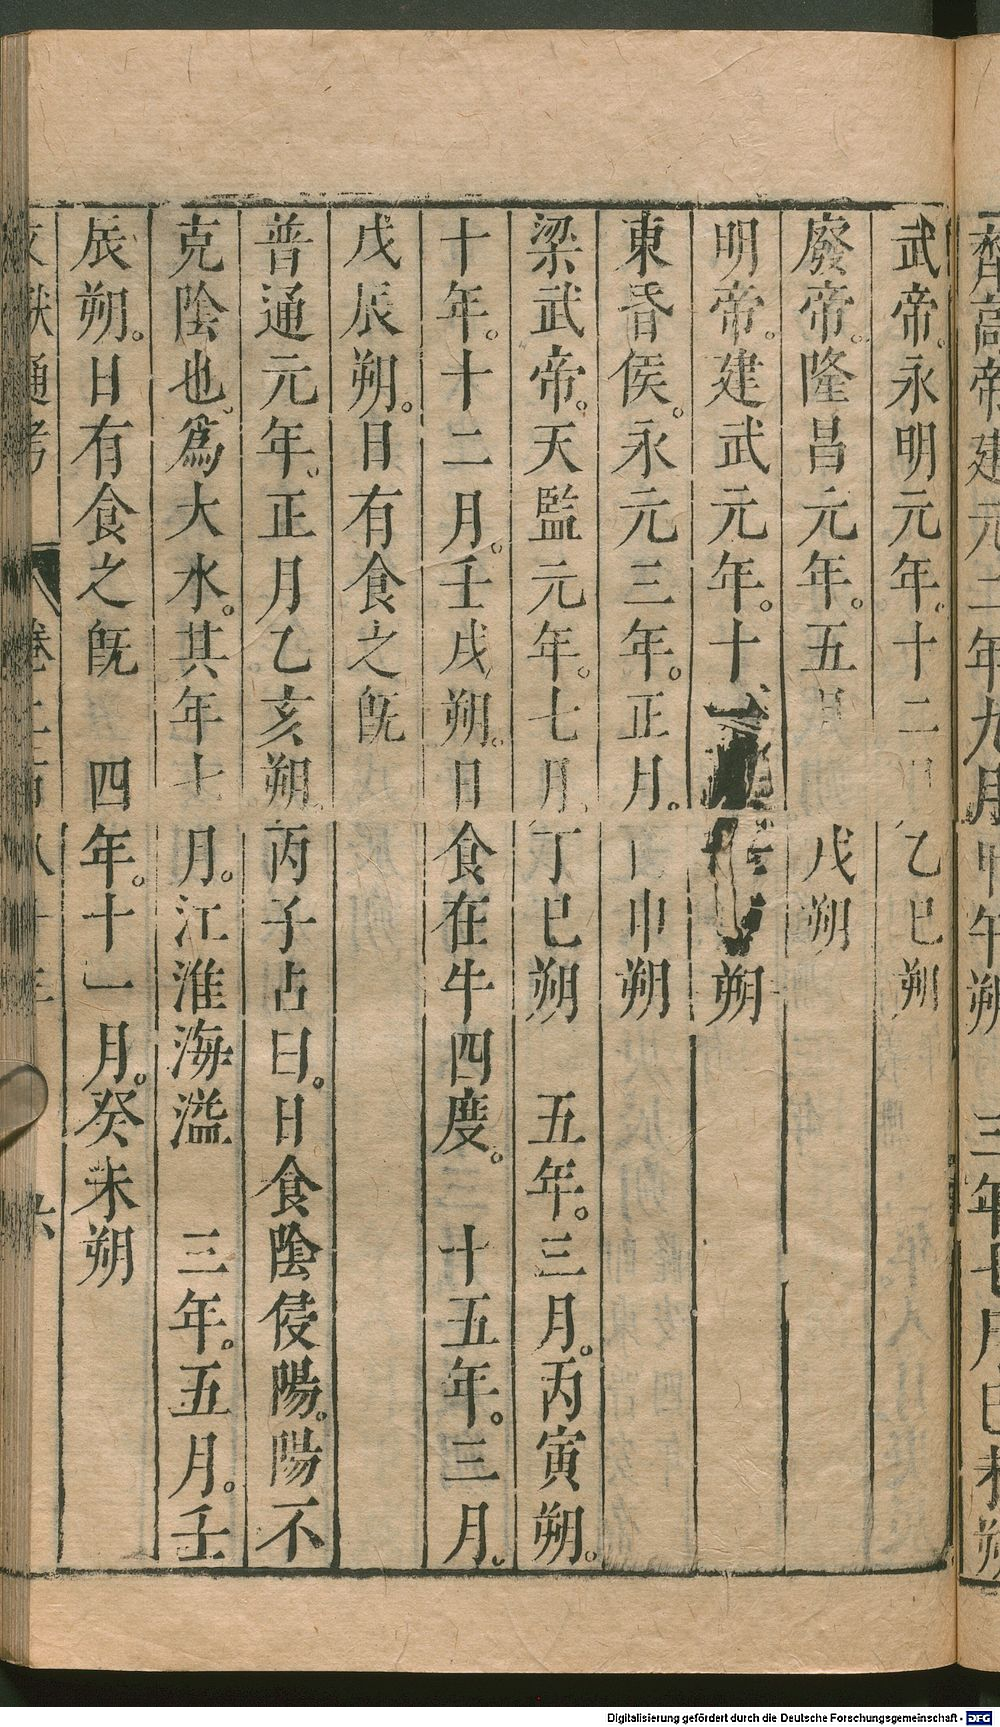 齊高帝建元二年九月甲午朔　三年七月己未朔
武帝。永明元年。十二月乙巳朔
廢帝。隆昌元年。五月戊朔
明帝。建武元年。十朔
東昏侯。永元三年。正月。申朔
梁武帝。天監元年。七月。丁巳朔　五年。三月。丙寅朔。
十年。十二月。壬戌朔。日食在牛四度。　十五年。三月。
戊辰朔。日有食之旣
普通元年。正月乙亥朔。丙子占曰。日食陰侵陽。陽不
克陰也。爲大水。其年七月。江淮海溢　三年。五月。壬
辰朔。日有食之旣　四年。十一月。癸未朔
文獻通考　卷二百八十三　六
Digitalisierung gefördert durch die Deutsche Forschungsgemeinschaft - DFG